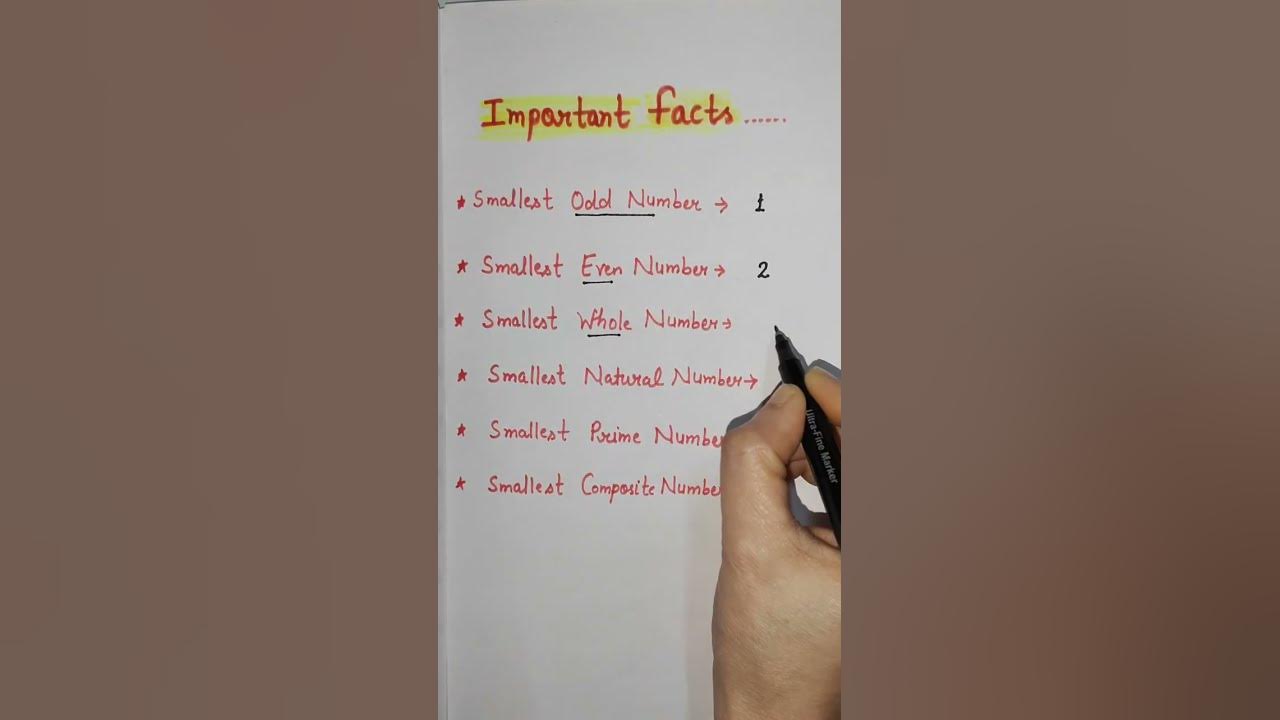 Important facts ......
* Smallest Odd Number → 1
* Smallest Even Number → 2
* Smallest Whole Number →
* Smallest Natural Number →
* Smallest Prime Numbe
* Smallest Composite Numbe
Ultra-Fine Marker